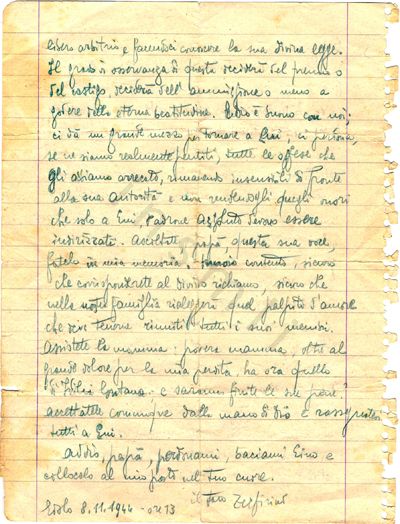 libero arbitrio e facendoci conoscere la sua divina legge.
Il grado di osservanza di questa deciderà del premio o
del castigo, deciderà dell'ammissione o meno a
godere della eterna beatitudine. Iddio è buono con noi:
ci dà un grande mezzo per tornare a Lui, ci perdona,
se ne siamo realmente pentiti, tutte le offese che
gli abbiamo arrecato, rimanendo insensibili di fronte
alla sua autorità e non rendendogli quegli onori
che solo a Lui, Padrone Assoluto devono essere
indirizzate. Ascoltate, papà, questa sua voce,
fatelo in mia memoria. contento, sicuro
che corrisponderete al divino richiamo, sicuro che
nella nostra famiglia rialeggerà quel palpito d'amore
che deve tenere riuniti tutti i suoi membri.
Assistete la mamma: povera mamma, oltre al
grande dolore per la mia perdita, ha ora quello
di lontano; e saranno finite le sue pene:
accettatele comunque dalla mano di Dio e rassegnatevi
tutti a Lui.
Addio, papà, perdonami, baciami Lino e
collocalo al mio posto nel Tuo cuore.
il tuo Zefirino
8.11.1944 - ore 13